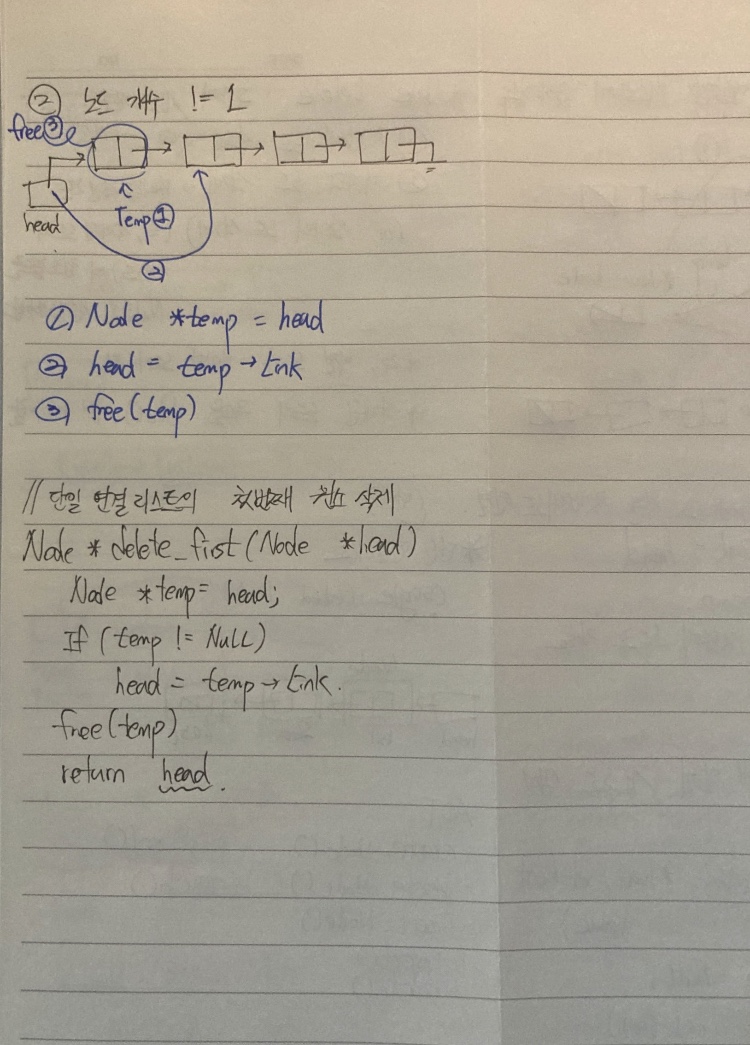 ② 노드 개수 != 1
free③
Temp①
head
②
① Node *temp = head
② head = temp → link
③ free(temp)
// 단일 연결리스트의 첫번째 원소 삭제
Node * delete_first(Node *head)
Node *temp = head;
If (temp != NULL)
head = temp → link.
free(temp)
return head.